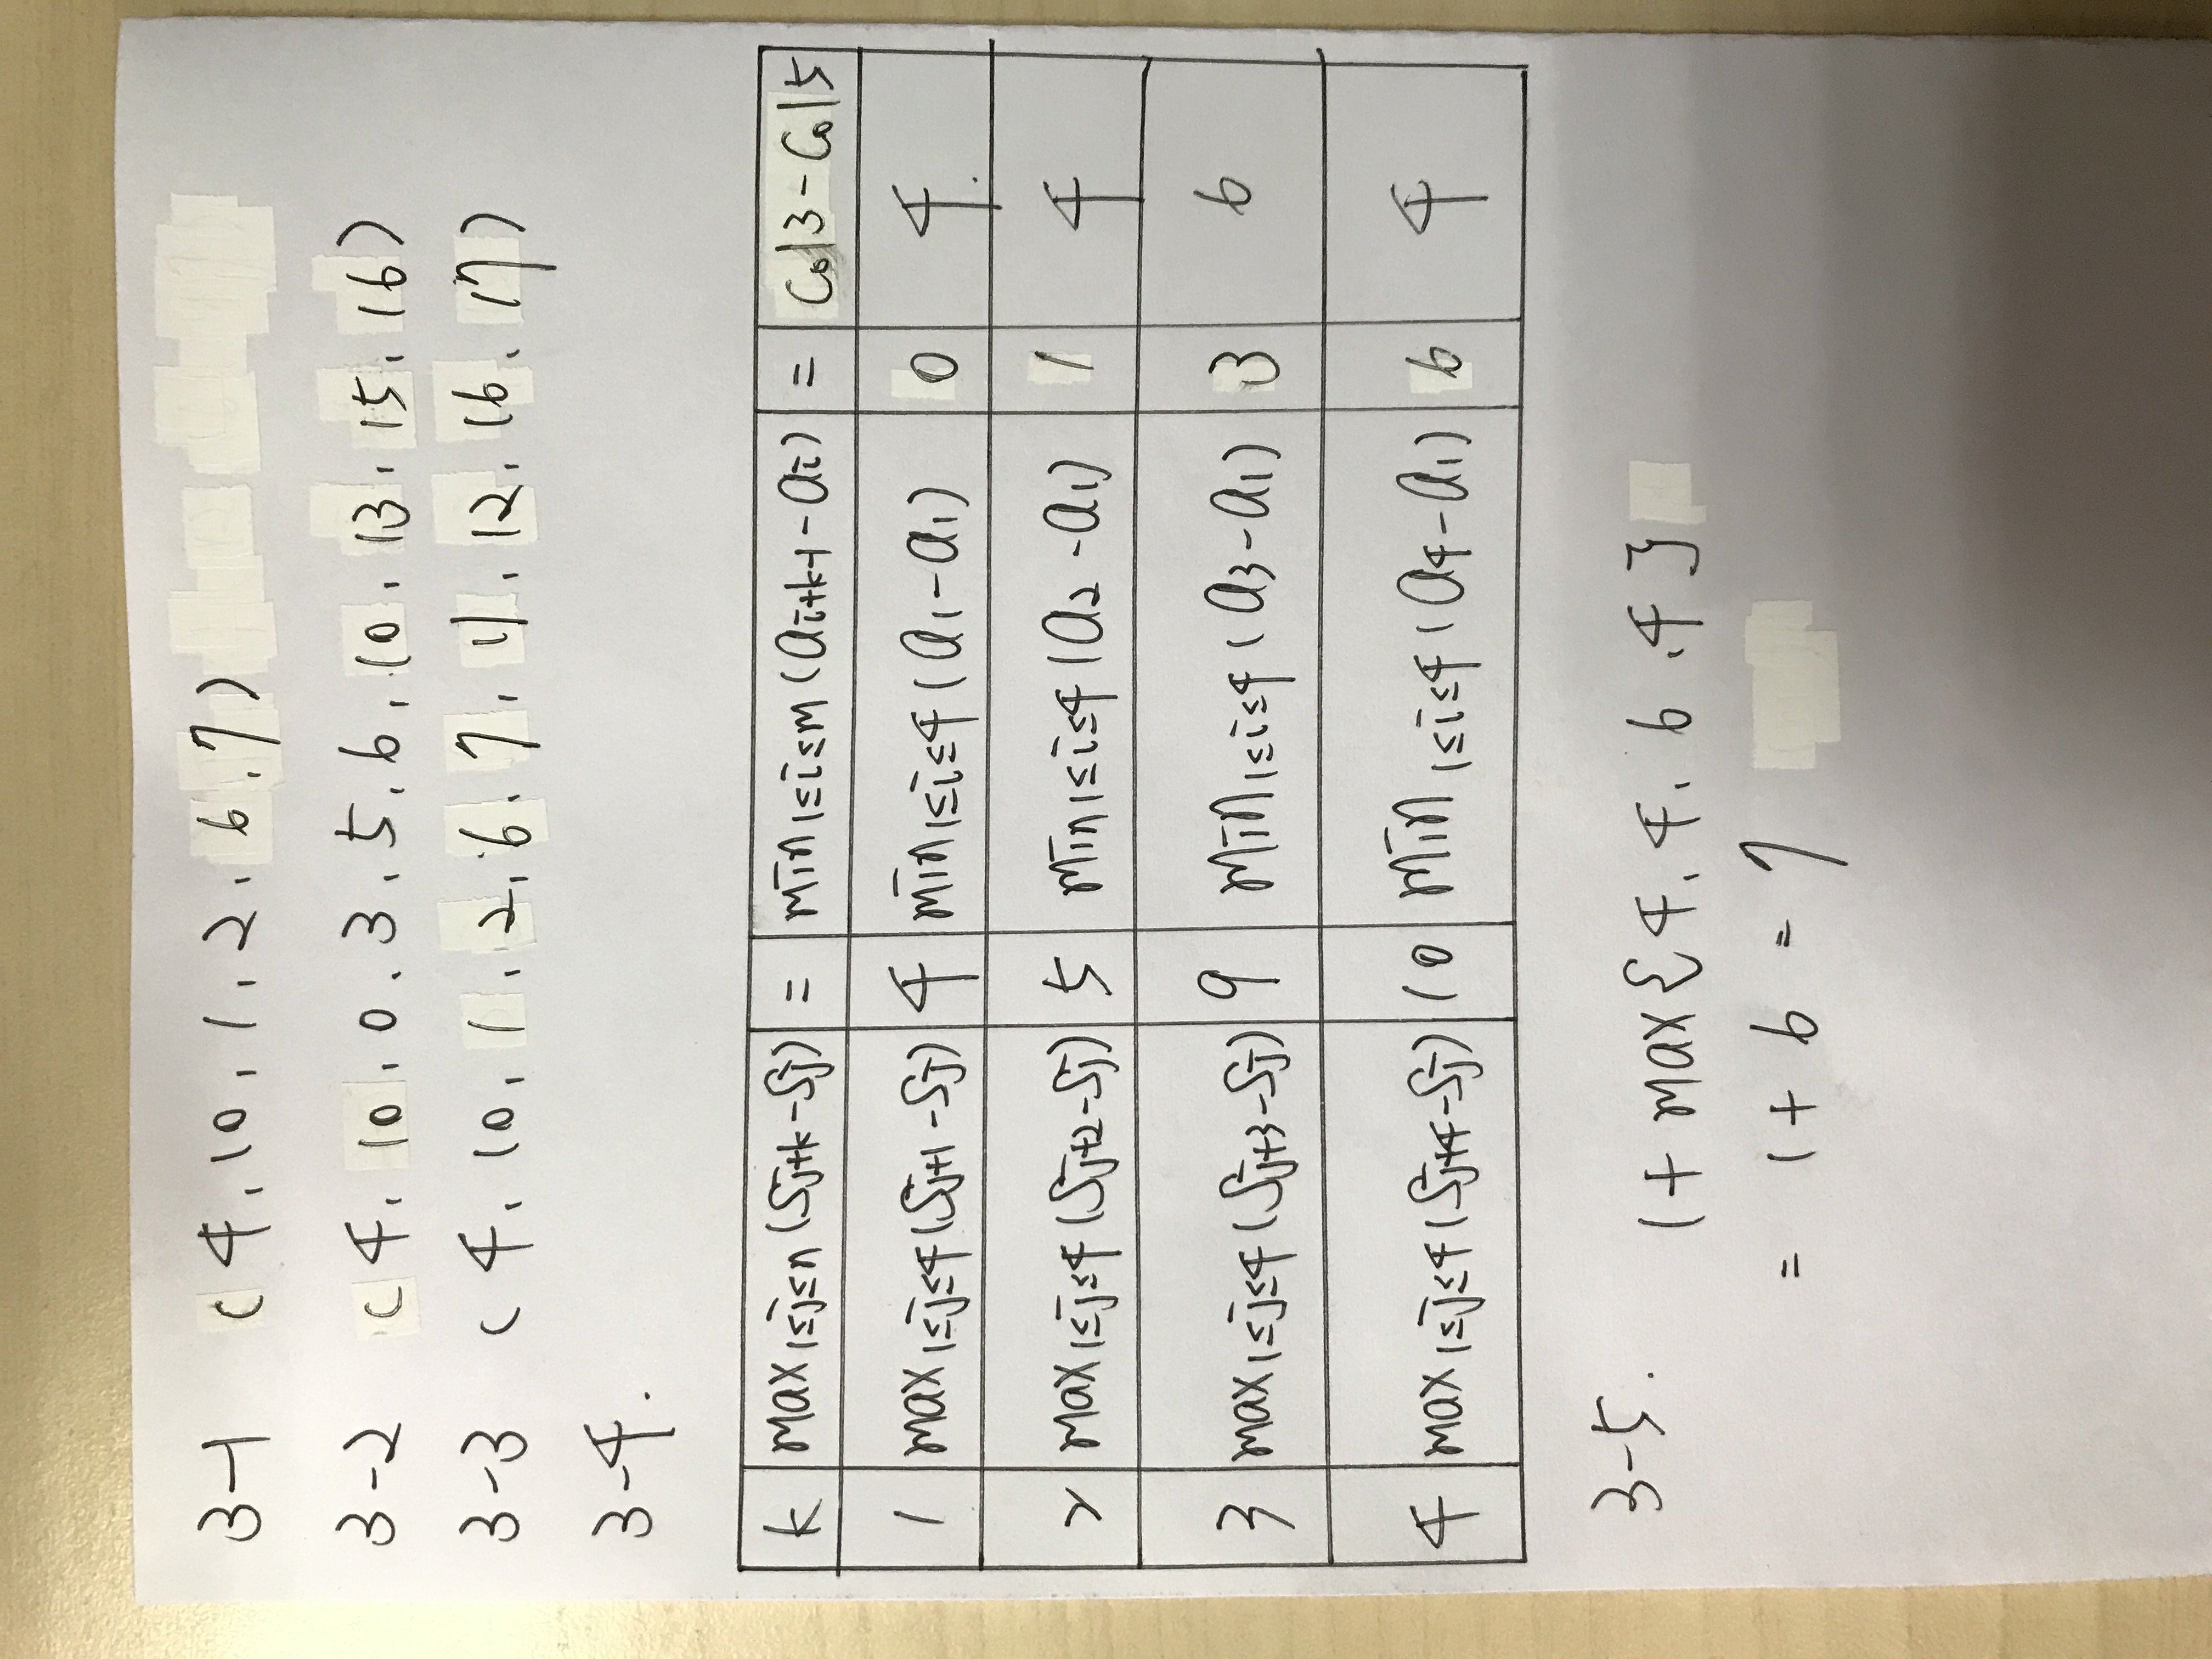 3-1 ( 4, 10, 1, 2, 6, 7 )
3-2 ( 4, 10, 0, 3, 5, 6, 10, 13, 15, 16 )
3-3 ( 4, 10, 1, 2, 6, 7, 11, 12, 16, 17 )
3-4.
k max 1≤j≤n (Sj+k - Sj) = min 1≤i≤m (ai+k-1 - ai) = Col3 - Col5
1 max 1≤j≤4 (Sj+1 - Sj) 4 min 1≤i≤4 (a1 - a1) 0 4
2 max 1≤j≤4 (Sj+2 - Sj) 5 min 1≤i≤4 (a2 - a1) 1 4
3 max 1≤j≤4 (Sj+3 - Sj) 9 min 1≤i≤4 (a3 - a1) 3 6
4 max 1≤j≤4 (Sj+4 - Sj) 10 min 1≤i≤4 (a4 - a1) 6 4
3-5. 1 + max { 4, 4, 6, 4 }
= 1 + 6 = 7